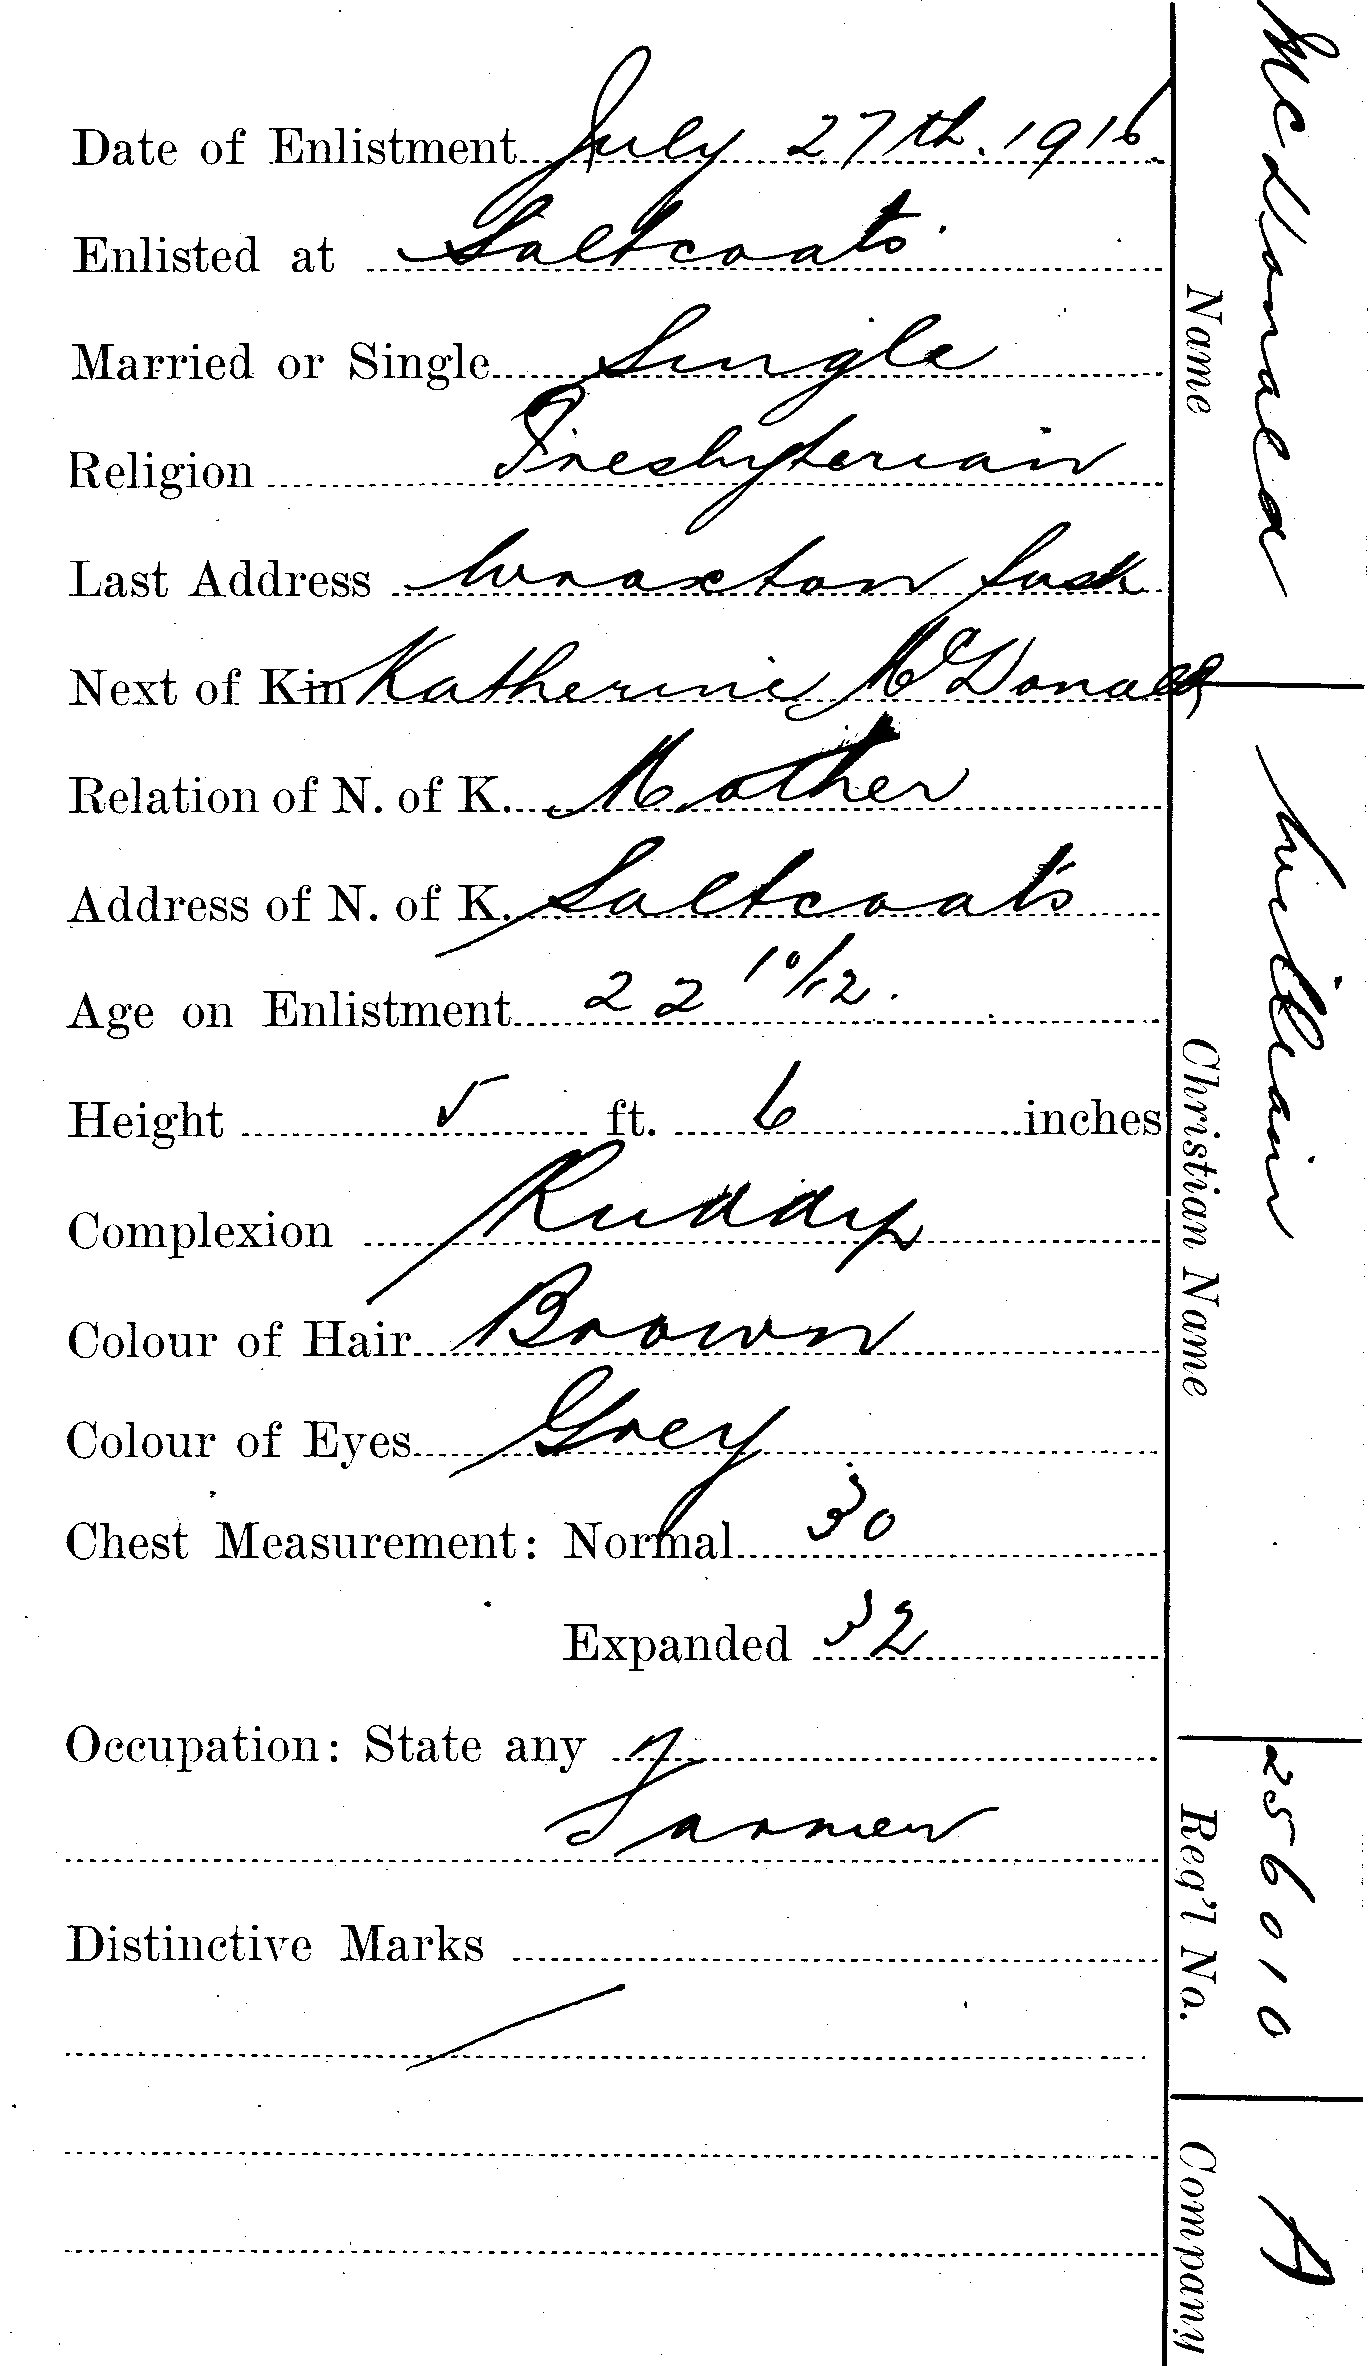 Date of Enlistment July 27th. 1916.
Enlisted at Saltcoats.
Married or Single Single
Religion Presbyterian
Last Address Wroxton Sask
Next of Kin Katherine McDonald
Relation of N. of K. Mother
Address of N. of K. Saltcoats
Age on Enlistment 22 10/12.
Height 5 ft. 6 inches
Complexion Ruddy
Colour of Hair Brown
Colour of Eyes Grey
Chest Measurement: Normal 30
Expanded 32
Occupation: State any
Farmer
Distinctive Marks
McDonald William 256010 A
Name Christian Name Reg'l No. Company